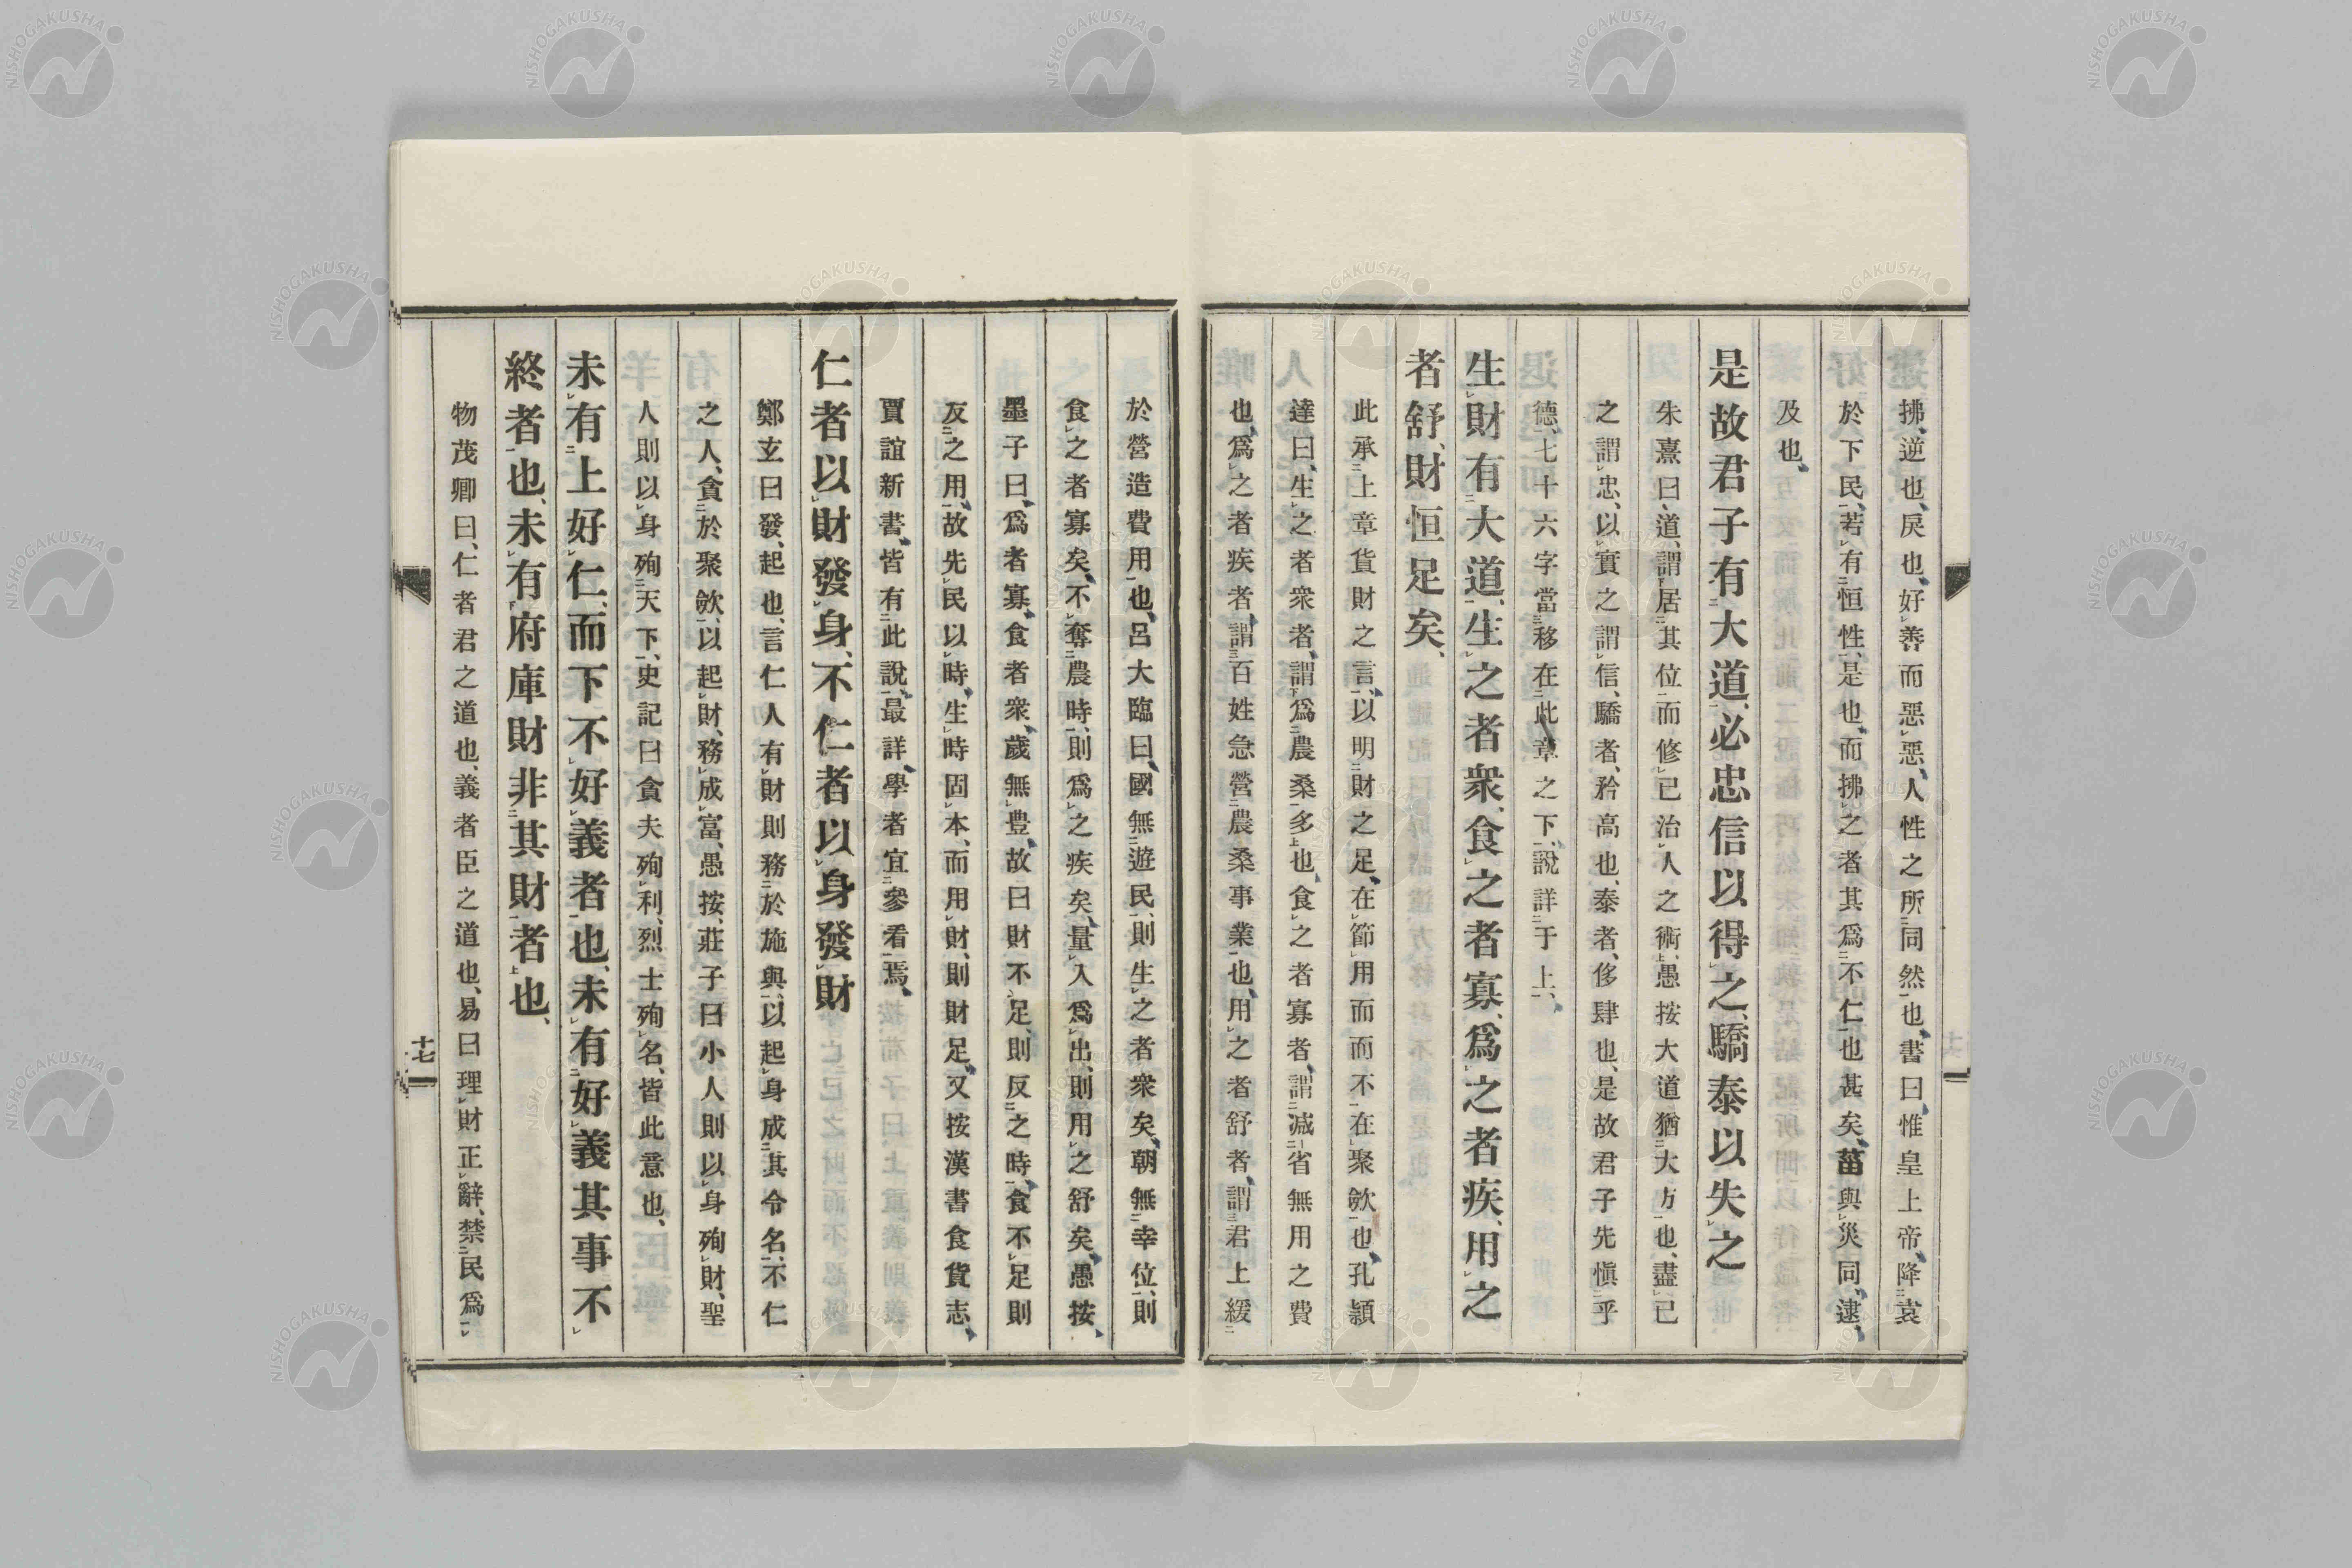 拂、逆也、戾也、好善而惡惡、人性之所同然也、書曰、惟皇上帝、降衷
於下民、若有恒性、是也、而拂之者其爲不仁也甚矣、菑與災同、逮、
及也、
是故君子有大道、必忠信以得之、驕泰以失之
朱熹曰、道、謂居其位而修己治人之術、愚按大道猶大方也、盡己
之謂忠、以實之謂信、驕者、矜高也、泰者、侈肆也、是故君子先愼乎
德、七十六字當移在此章之下、說詳于上、
生財有大道、生之者衆、食之者寡、爲之者疾、用之
者舒、財恒足矣、
此承上章貨財之言、以明財之足、在節用而不在聚斂也、孔穎
達曰、生之者衆者、謂爲農桑多也、食之者寡者、謂減省無用之費
也、爲之者疾者、謂百姓急營農桑事業也、用之者舒者、謂君上緩
於營造費用也、呂大臨曰、國無遊民、則生之者衆矣、朝無幸位、則
食之者寡矣、不奪農時、則爲之疾矣、量入爲出、則用之舒矣、愚按、
墨子曰、爲者寡、食者衆、歲無豊、故曰財不足、則反之時、食不足則
反之用、故先民以時、生時固本、而用財、則財足、又按漢書食貨志、
賈誼新書、皆有此說、最詳、學者宜參看焉、
仁者以財發身、不仁者以身發財
鄭玄曰發、起也、言仁人有財則務於施與、以起身成其令名、不仁
之人、貪於聚斂、以起財、務成富、愚按、莊子曰小人則以身殉財、聖
人則以身殉天下、史記曰貪夫殉利、烈士殉名、皆此意也、
未有上好仁、而下不好義者也、未有好義其事不
終者也、未有府庫財非其財者也、
物茂卿曰、仁者君之道也、義者臣之道也、易曰理財正辭、禁民爲
十七
NISHOGAKUSHA